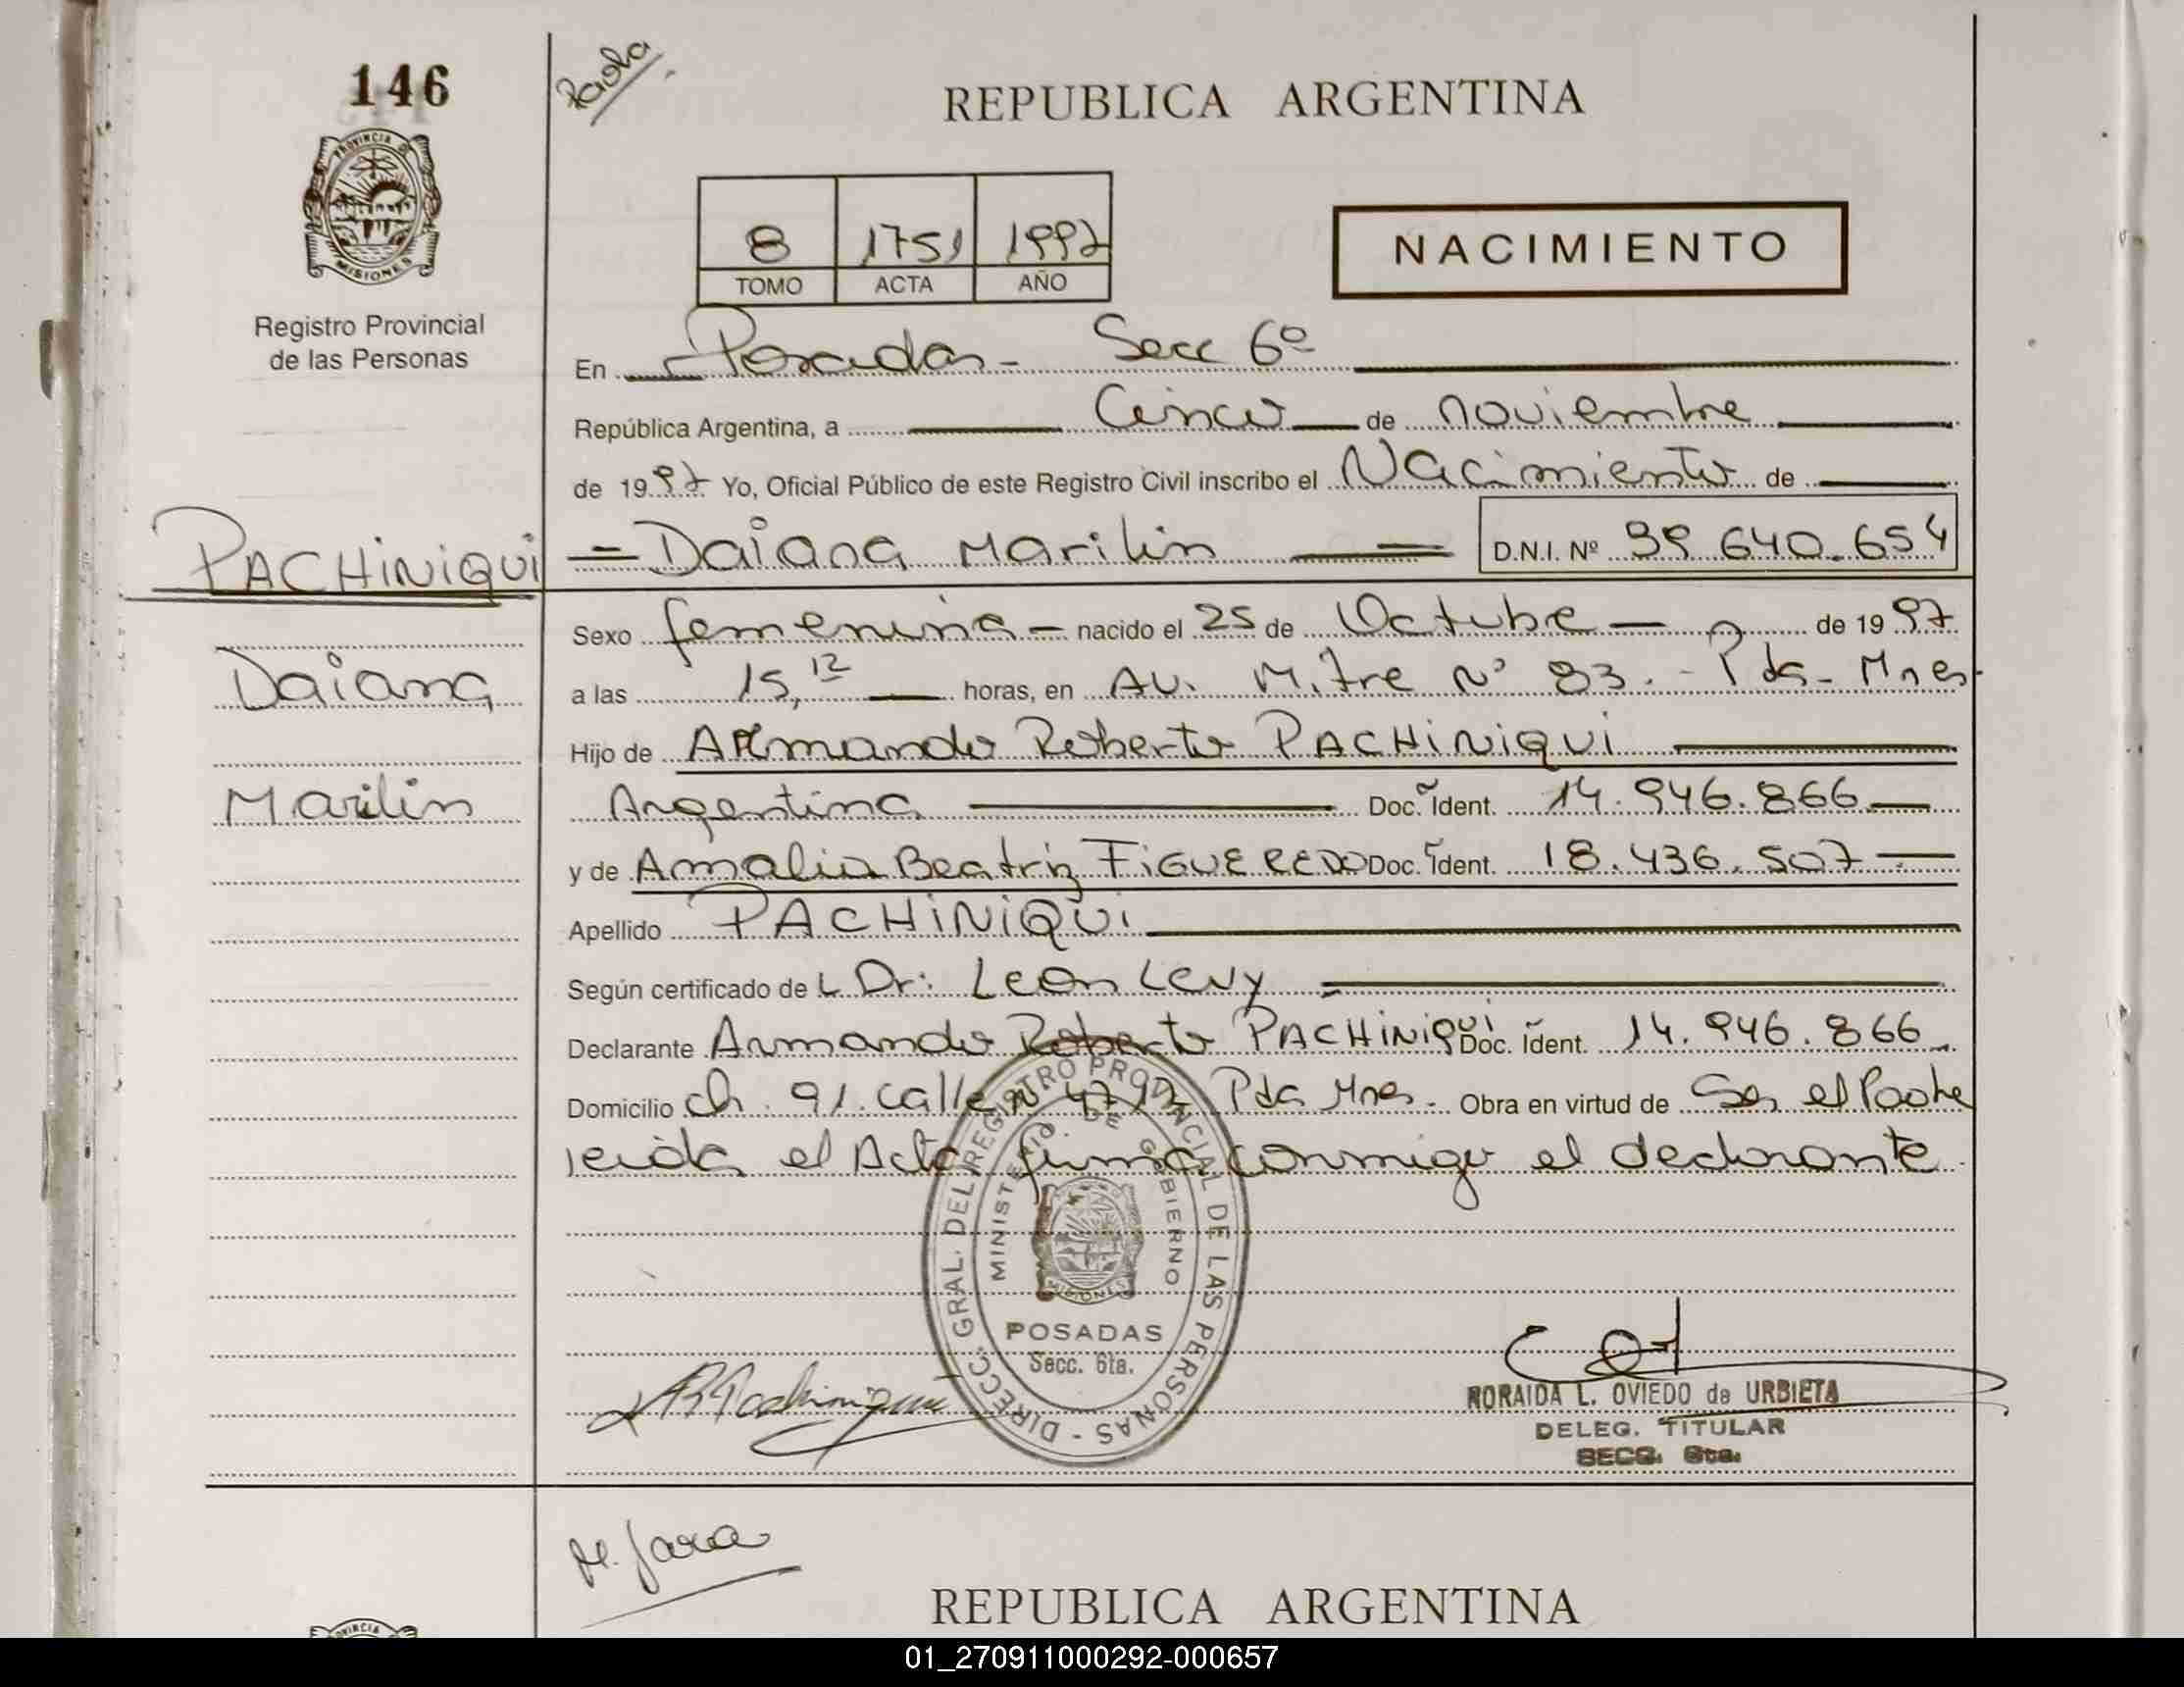 146
Paola
REPUBLICA ARGENTINA
PROVINCIA DE MISIONES
8 1751 1997
TOMO ACTA AÑO
NACIMIENTO
Registro Provincial
de las Personas
En Posadas - Secc 6º
República Argentina, a Cinco de noviembre
de 1997 Yo, Oficial Público de este Registro Civil inscribo el Nacimiento de
PACHINIQUI
Daiana Marilin D.N.I. Nº 39 640.654
Daiana
Marilin
Sexo femenina - nacido el 25 de Octubre de 1997
a las 15,12 horas, en Av. Mitre Nº 83. - Pdas - Mnes
Hijo de Armando Roberto PACHINIQUI
Argentina Doc. Ident. 14.946.866
y de Amalia Beatriz FIGUEREDO Doc. Ident. 18.436.507
Apellido PACHINIQUI
Según certificado de L Dr: León Levy
Declarante Armando Roberto PACHINIQUI Doc. Ident. 14.946.866
Domicilio ch. 91. calle Pda Mnes - Obra en virtud de Ser el Padre
leida el Acta firma conmigo el declarante
DIRECC. GRAL. DEL REGISTRO PROVINCIAL DE LAS PERSONAS -
MINISTERIO DE GOBIERNO
MISIONES
POSADAS
Secc. 6ta.
NORAIDA L. OVIEDO de URBIETA
DELEG. TITULAR
SECC. 6ta.
M. Jara
REPUBLICA ARGENTINA
PROVINCIA
01_270911000292-000657